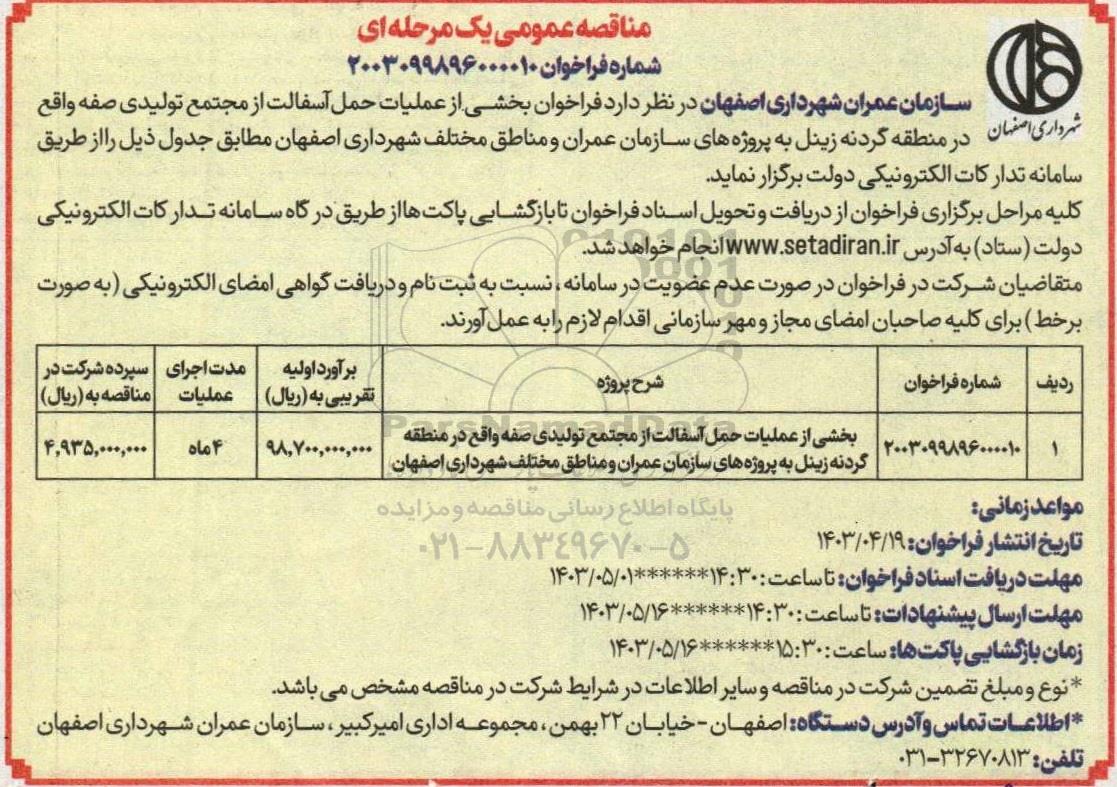 مناقصه عمومی یک مرحله ای
شماره فراخوان ۲۰۰۳۰۹۹۸۹۶۰۰۰۰۱۰
شهرداری اصفهان
سازمان عمران شهرداری اصفهان در نظر دارد فراخوان بخشی از عملیات حمل آسفالت از مجتمع تولیدی صفه واقع
در منطقه گردنه زینل به پروژه های سازمان عمران و مناطق مختلف شهرداری اصفهان مطابق جدول ذیل را از طریق
سامانه تدارکات الکترونیکی دولت برگزار نماید.
کلیه مراحل برگزاری فراخوان از دریافت و تحویل اسناد فراخوان تا بازگشایی پاکت ها از طریق درگاه سامانه تدارکات الکترونیکی
دولت (ستاد) به آدرس www.setadiran.ir انجام خواهد شد.
متقاضیان شرکت در فراخوان در صورت عدم عضویت در سامانه، نسبت به ثبت نام و دریافت گواهی امضای الکترونیکی (به صورت
برخط) برای کلیه صاحبان امضای مجاز و مهر سازمانی اقدام لازم را به عمل آورند.
ردیف شماره فراخوان شرح پروژه برآورد اولیه تقریبی به (ریال) مدت اجرای عملیات سپرده شرکت در مناقصه به (ریال)
۱ ۲۰۰۳۰۹۹۸۹۶۰۰۰۰۱۰ بخشی از عملیات حمل آسفالت از مجتمع تولیدی صفه واقع در منطقه گردنه زینل به پروژه های سازمان عمران و مناطق مختلف شهرداری اصفهان ۹۸,۷۰۰,۰۰۰,۰۰۰ ۴ ماه ۴,۹۳۵,۰۰۰,۰۰۰
ParsNamadData
پایگاه اطلاع رسانی مناقصه و مزایده
۰۲۱-۸۸۳۴۹۶۷۰-۵
مواعد زمانی:
تاریخ انتشار فراخوان: ۱۴۰۳/۰۴/۱۹
مهلت دریافت اسناد فراخوان: تا ساعت: ۱۴:۳۰******۱۴۰۳/۰۵/۰۱
مهلت ارسال پیشنهادات: تا ساعت: ۱۴:۳۰******۱۴۰۳/۰۵/۱۶
زمان بازگشایی پاکت ها: ساعت: ۱۵:۳۰******۱۴۰۳/۰۵/۱۶
* نوع و مبلغ تضمین شرکت در مناقصه و سایر اطلاعات در شرایط شرکت در مناقصه مشخص می باشد.
*اطلاعات تماس و آدرس دستگاه: اصفهان - خیابان ۲۲ بهمن، مجموعه اداری امیرکبیر، سازمان عمران شهرداری اصفهان
تلفن: ۳۲۶۷۰۸۱۳-۰۳۱